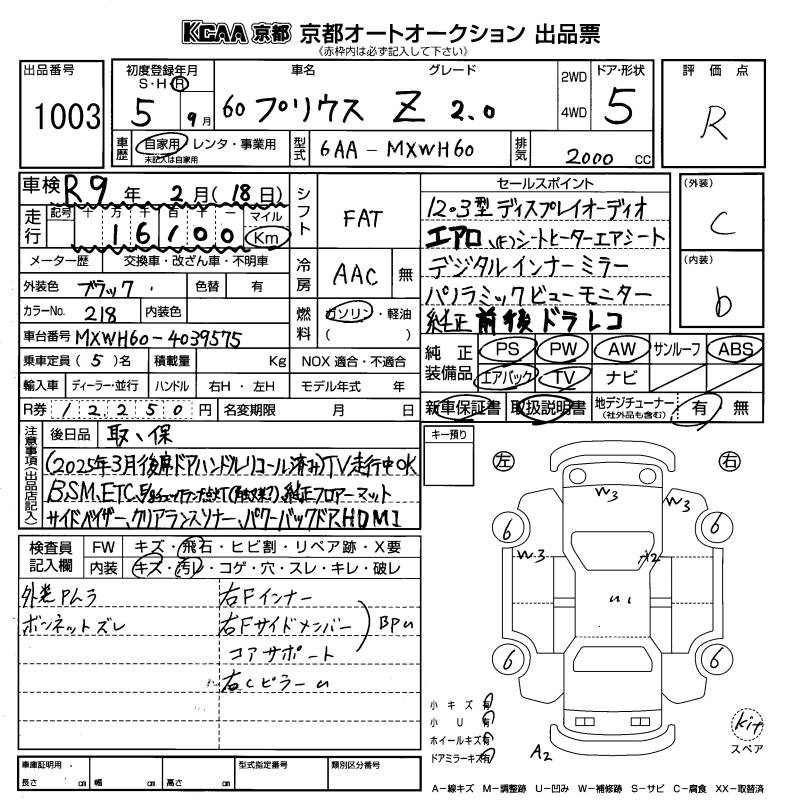 KCAA 京都 京都オートオークション 出品票
(赤枠内は必ず記入して下さい)
出品番号
1003
初度登録年月
S・H・R
5 9月
車名 グレード
60 プリウス Z 2.0
2WD
4WD
ドア・形状
5
評価点
R
車歴
自家用・レンタ・事業用
未記入は自家用
型式
6AA-MXWH60
排気
2000 cc
車検 R9年 2月(18日)
走行
記号 十 万 千 百 十 一 マイル
16100 Km
シフト
FAT
メーター歴 交換車・改ざん車・不明車
冷房
AAC 無
外装色 ブラック 色替 有
カラーNo. 218 内装色
燃料
ガソリン・軽油
( )
車台番号 MXWH60-4039575
乗車定員(5)名 積載量 Kg NOX適合・不適合
輸入車 ディーラー・並行 ハンドル 右H・左H モデル年式 年
R券 12250円 名変期限 月 日
セールスポイント
12.3型ディスプレイオーディオ
エアロ、(F)シートヒーターエアシート
デジタルインナーミラー
パノラミックビューモニター
純正前後ドラレコ
(外装)
C
(内装)
b
純正装備品
PS PW AW サンルーフ ABS
エアバック TV ナビ
新車保証書 取扱説明書 地デジチューナー(社外品も含む) 有・無
注意事項(出品店記入)
後日品 取、保
(2025年3月後席ドアハンドルリコール済み)TV走行中OK
B,SM,ETC、
純正フロアーマット
サイドバイザー、クリアランスソナー、パワーバックドア、HDMI
検査員記入欄
FW キズ・飛石・ヒビ割・リペア跡・X要
内装 キズ・汚レ・コゲ・穴・スレ・キレ・破レ
外装PAムラ
ボンネットズレ
右Fインナー
右Fサイドメンバー
コアサポート
BPU
右CピラーU
キー預り
左 右
W3 W3
6 6
W3 A2
U1
6 6
A2
小キズ有
小U有
ホイールキズ有
ドアミラーキズ有
kit
スペア
車庫証明用
長さ cm 幅 cm 高さ cm
型式指定番号
類別区分番号
A-線キズ M-調整跡 U-凹み W-補修跡 S-サビ C-腐食 XX-取替済